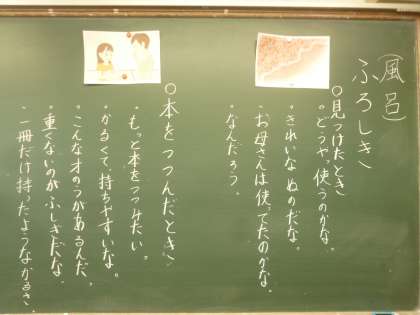 (風呂)
ふろしき
○見つけたとき
・どうやって使うのかな。
・きれいなぬのだな。
・お母さんは使ってたのかな。
・なんだろう。
○本をつつんだとき
・もっと本をつつみたい。
・かるくて、持ちやすいな。
・こんな才のうがあるんだ。
・重くないのがふしぎだな。
・一冊だけ持ったようなかるさ。